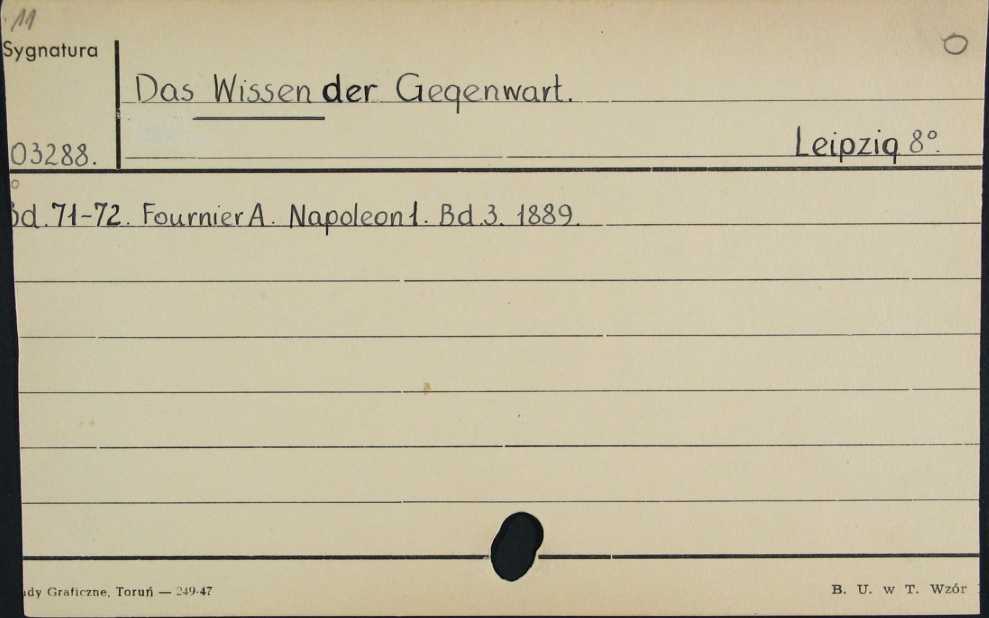 11
Sygnatura
Das Wissen der Gegenwart.
Leipzig 8°.
03288.
Bd. 71-72. Fournier A. Napoleon 1. Bd. 3. 1889.
Graficzne, Toruń — 249-47
B. U. w T. Wzór